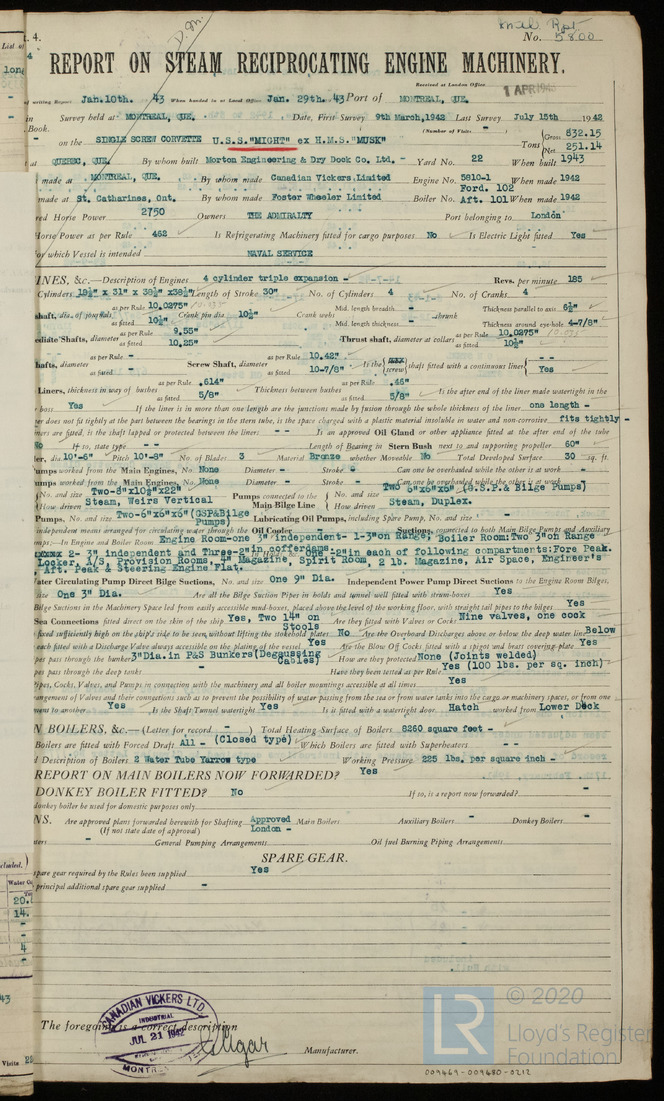 t. 4.
No. 5800
REPORT ON STEAM RECIPROCATING ENGINE MACHINERY.
Received at London Office
1 APR 1943
of writing Report Jan.10th. 43 When handed in at Local Office Jan. 29th. 43 Port of MONTREAL, QUE.
in Survey held at MONTREAL, QUE. Date, First Survey 9th March, 1942 Last Survey July 15th 1942
Book. (Number of Visits
on the SINGLE SCREW CORVETTE U.S.S."MIGHT" ex H.M.S."MUSK" Tons Gross 832.15 Net 251.14
at QUEBEC, QUE. By whom built Morton Engineering & Dry Dock Co. Ltd. Yard No. 22 When built 1943
made at MONTREAL, QUE. By whom made Canadian Vickers Limited Engine No. 5810-1 When made 1942
made at St. Catharines, Ont. By whom made Foster Wheeler Limited Boiler No. Ford. 102 Aft. 101 When made 1942
red Horse Power 2750 Owners THE ADMIRALTY Port belonging to London
Horse Power as per Rule 462 Is Refrigerating Machinery fitted for cargo purposes No Is Electric Light fitted Yes
for which Vessel is intended NAVAL SERVICE
INES, &c.—Description of Engines 4 cylinder triple expansion - Revs. per minute 185
Cylinders 18½" x 31" x 38½" x38½" Length of Stroke 30" No. of Cylinders 4 No. of Cranks 4
shaft, dia. of journals as per Rule 10.0275" as fitted 10½" Crank pin dia. 10½" Crank webs Mid. length breadth - Mid. length thickness - shrunk Thickness parallel to axis 6½" Thickness around eye-hole 4-7/8"
ediate Shafts, diameter as per Rule 9.55" as fitted 10.25" Thrust shaft, diameter at collars as per Rule 10.0275" as fitted 10½"
hafts, diameter as per Rule - as fitted - Screw Shaft, diameter as per Rule 10.42" as fitted 10-7/8" Is the screw shaft fitted with a continuous liner Yes
Liners, thickness in way of bushes as per Rule .614" as fitted 5/8" Thickness between bushes as per Rule .46" as fitted 5/8" Is the after end of the liner made watertight in the
boss Yes If the liner is in more than one length are the junctions made by fusion through the whole thickness of the liner one length -
er does not fit tightly at the part between the bearings in the stern tube, is the space charged with a plastic material insoluble in water and non-corrosive fits tightly -
iners are fitted, is the shaft lapped or protected between the liners - - Is an approved Oil Gland or other appliance fitted at the after end of the tube
No If so, state type - - Length of Bearing in Stern Bush next to and supporting propeller 60"
ler, dia. 10'-6" Pitch 10'-8" No. of Blades 3 Material Bronze whether Moveable No Total Developed Surface 30 sq. ft.
umps worked from the Main Engines, No. None Diameter - Stroke Can one be overhauled while the other is at work -
umps worked from the Main Engines, No. None Diameter - Stroke - Can one be overhauled while the other is at work -
No. and size Two-8"x10½"x22" Pumps connected to the Main Bilge Line No. and size Two 6"x6"x6" (G.S.P.& Bilge Pumps)
How driven Steam, Weirs Vertical How driven Steam, Duplex.
Pumps, No. and size Two-6"x6"x6"(GSP&Bilge Pumps) Lubricating Oil Pumps, including Spare Pump, No. and size -
independent means arranged for circulating water through the Oil Cooler - Suctions, connected to both Main Bilge Pumps and Auxiliary
mps:—In Engine and Boiler Room Engine Room-one 3" independent- 1-3"on Range, Boiler Room:Two 3"on Range
2- 3" independent and Three-2"in cofferdams. One -2"in each of following compartments:Fore Peak.
Locker, A/S, Provision Rooms, 4" Magazine, Spirit Room, 2 lb. Magazine, Air Space, Engineer's
Aft. Peak & Steering Engine Flat.
Water Circulating Pump Direct Bilge Suctions, No. and size One 9" Dia. Independent Power Pump Direct Suctions to the Engine Room Bilges,
size One 3" Dia. Are all the Bilge Suction Pipes in holds and tunnel well fitted with strum-boxes Yes
Bilge Suctions in the Machinery Space led from easily accessible mud-boxes, placed above the level of the working floor, with straight tail pipes to the bilges Yes
Sea Connections fitted direct on the skin of the ship Yes, Two 14" on Stools Nine valves, one cock
fixed sufficiently high on the ship's side to be seen, without lifting the stokehold plates No Are the Overboard Discharges above or below the deep water line Below
each fitted with a Discharge Valve always accessible on the plating of the vessel Yes Are the Blow Off Cocks fitted with a spigot and brass covering plate Yes
pes pass through the bunkers 3"Dia.in P&S Bunkers(Degaussing Cables) How are they protected None (Joints welded)
pes pass through the deep tanks - Have they been tested as per Rule Yes (100 lbs. per sq. inch)-
Pipes, Cocks, Valves, and Pumps in connection with the machinery and all boiler mountings accessible at all times Yes
rangement of Valves and their connections such as to prevent the possibility of water passing from the sea or from water tanks into the cargo or machinery spaces, or from one
ment to another Yes Is the Shaft Tunnel watertight Yes Is it fitted with a watertight door Hatch worked from Lower Deck
N BOILERS, &c.—(Letter for record - ) Total Heating Surface of Boilers 8260 square feet -
Boilers are fitted with Forced Draft All - (Closed type) Which Boilers are fitted with Superheaters - -
d Description of Boilers 2 Water Tube Yarrow type Working Pressure 225 lbs. per square inch -
REPORT ON MAIN BOILERS NOW FORWARDED? Yes
DONKEY BOILER FITTED? No If so, is a report now forwarded? -
donkey boiler be used for domestic purposes only -
NS. Are approved plans forwarded herewith for Shafting Approved London - Main Boilers Auxiliary Boilers - Donkey Boilers -
(If not state date of approval)
General Pumping Arrangements Oil fuel Burning Piping Arrangements
SPARE GEAR.
spare gear required by the Rules been supplied Yes
principal additional spare gear supplied -
CANADIAN VICKERS LTD
INDUSTRIAL
JUL 21 1942
MONTREAL
The foregoing is a correct description
Manufacturer.
LR
© 2020
Lloyd's Register
Foundation
009469-009480-0212